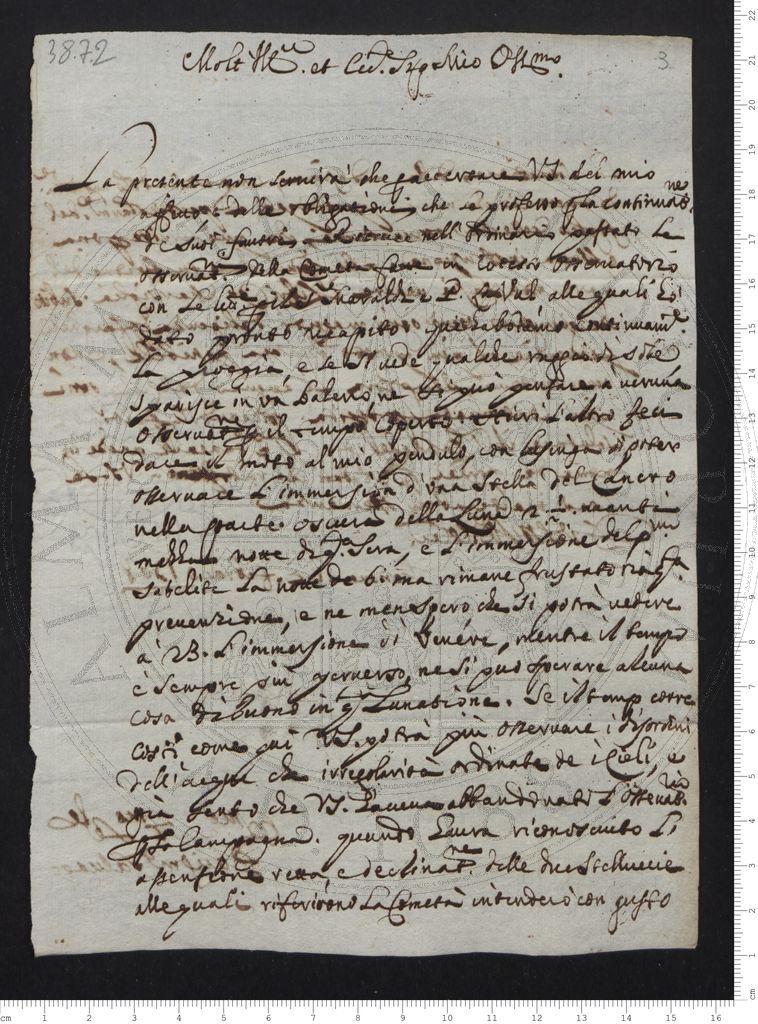 38.72
3
Molt Ill.re et Ecc.te Sig.r Mio Oss.mo
La presente non servirà che accertare VS. del mio
affetto e delle obligazioni che le professo p la continuaz.ne
de suoi favori nell'ordinario passato le
osservat.ni della Cometa fatte in cotesto osservatorio
con le lre p il Sig.r Maraldi e P. Laval alle quali hò
dato pronto ricapito. qui habbiamo continuam.te
la pioggia, e se si vede qualche raggio di sole
sparisce in un baleno, ne si può pensare a veruna
osservat.ne il tempo coperto. l'altro feci
dare il moto al mio pendulo, con lusinga di poter
osservare l'immersion d'una stella del Cancro
nella parte oscura della Luna inanti
mezza notte di q.ta sera, e l'immersione del p.mo
satelite la notte de 6. ma rimane frustatoria q.ta
prevenzione, e ne meno spero che si potrà vedere
a 23. l'immersione di Venere, mentre il tempo
è sempre più perverso, ne si può sperare alcuna
cosa di buono in q.ta Lunatione. Se il temp corre
costì come qui VS. potrà più osservare i disordini
dell'acque che irregolarità ordinate de i Cieli, e
già sento che VS. haveva abbandonato l'osservat.rio
p la Campagna. quando haura riconosciuto l'
assensione retta, e declinat.ne delle due stelluccie
alle quali riferirono la Cometa intenderò con gusto